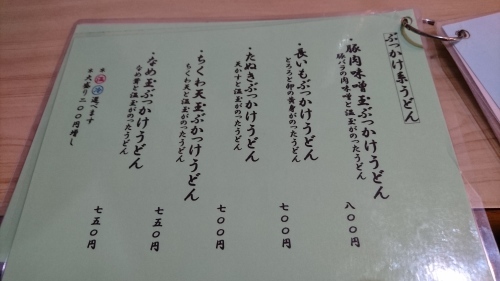 ぶっかけ系うどん
・豚肉味噌玉ぶっかけうどん 八〇〇円
豚バラの肉味噌と温玉がのったうどん
・長いもぶっかけうどん 七〇〇円
とろろと卵の黄身がのったうどん
・たぬきぶっかけうどん 七〇〇円
天かすと温玉がのったうどん
・ちくわ天玉ぶっかけうどん 七五〇円
ちくわ天と温玉がのったうどん
・なめ玉ぶっかけうどん 七五〇円
なめ茸と温玉がのったうどん
※温冷選べます
※大盛り二〇〇円増し